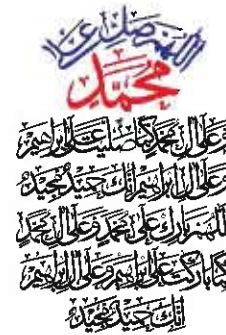 اللهم صل على
محمد
وعلى آل محمد كما صليت على إبراهيم
وعلى آل إبراهيم إنك حميد مجيد
اللهم بارك على محمد وعلى آل محمد
كما باركت على إبراهيم وعلى آل إبراهيم
إنك حميد مجيد